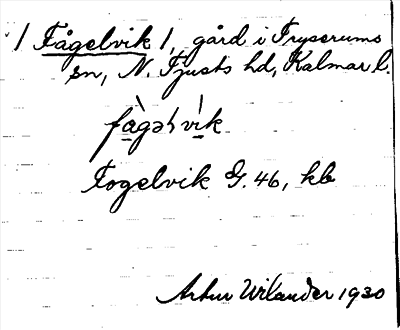 / Fågelvik /, gård i Tryserums
sn, N. Tjusts hd, Kalmar l.
fàgəlvìk
Fogelvik G. 46, kb
Artur Wilander 1930